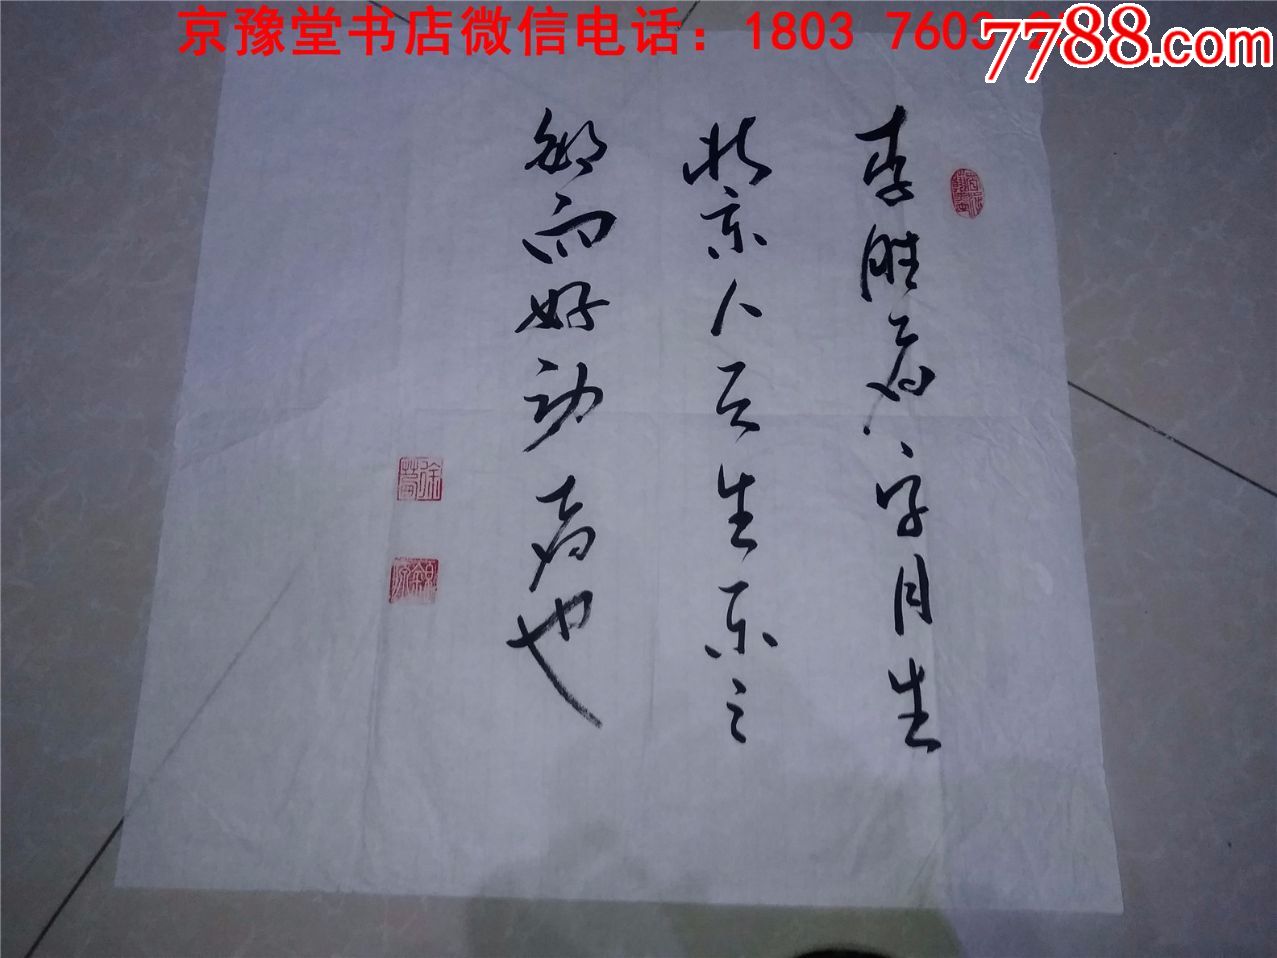 京豫堂书店微信电话：1803 7603
7788.com
李胜君字月生
北京人吾生东之
邻而好动者也